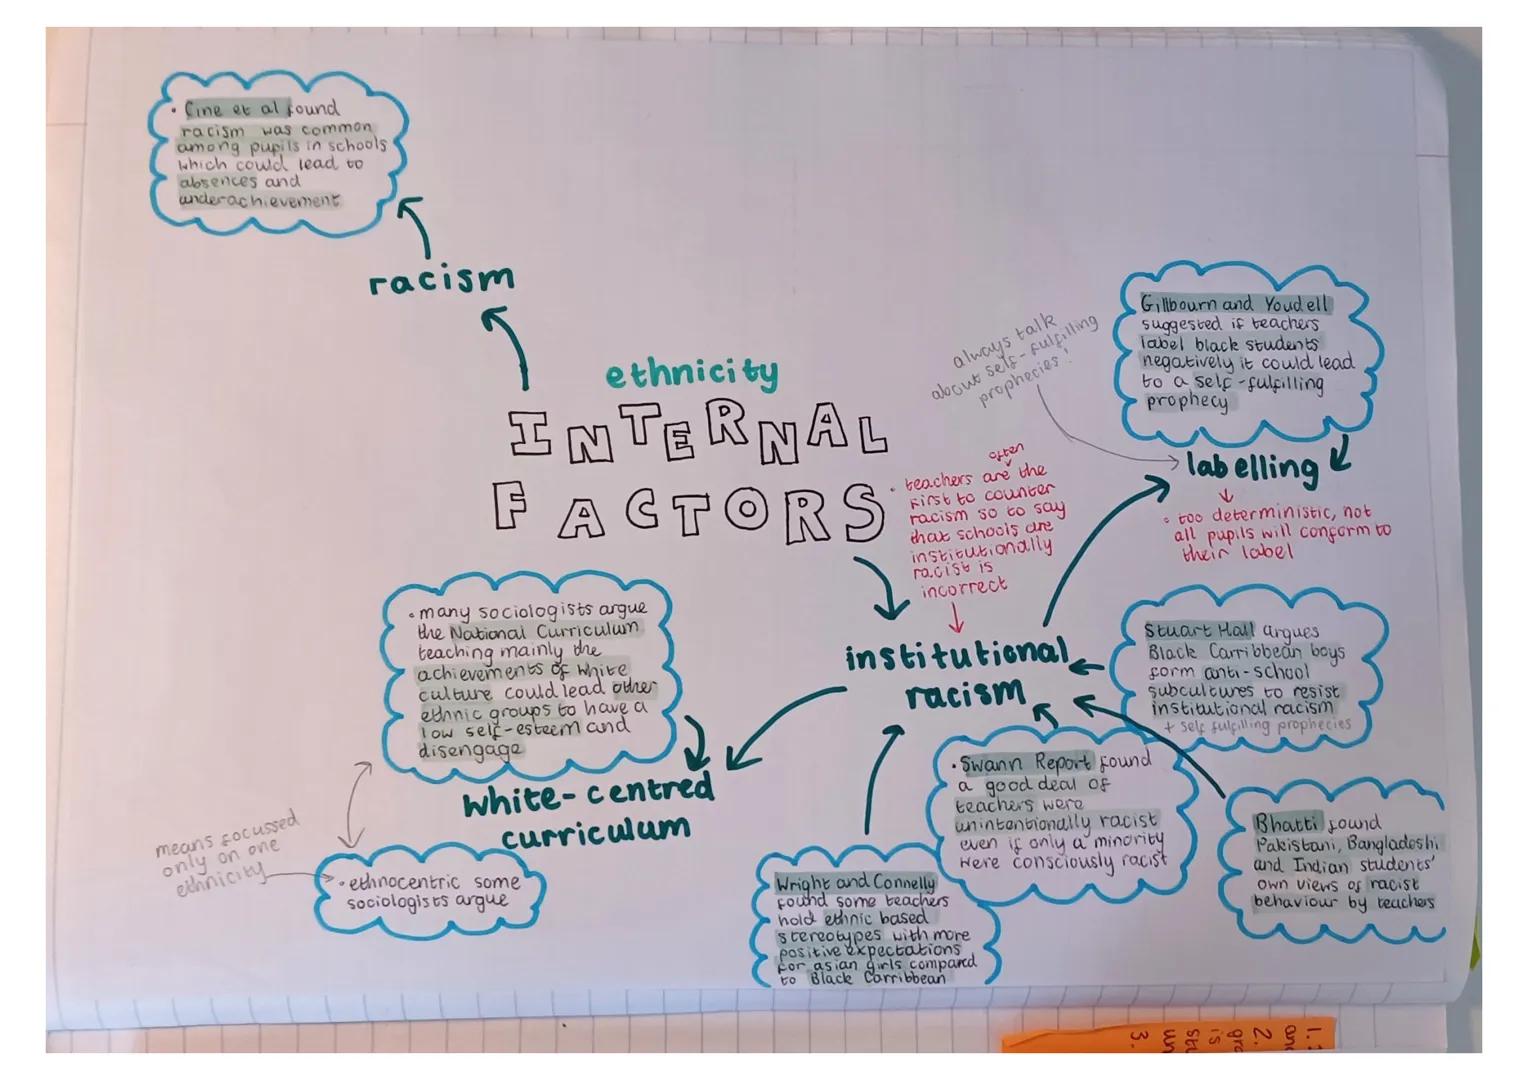 • Cine et al found
racism was common
among pupils in schools
which could lead to
absences and
underachievement
racism
ethnicity
INTERNAL
FACTORS
always talk
about self-fulfilling
prophecies!
Gillbourn and Youdell
suggested if teachers
label black students
negatively it could lead
to a self-fulfilling
prophecy
labelling
• too deterministic, not
all pupils will conform to
their label
often
• teachers are the
first to counter
racism so to say
that schools are
institutionally
racist is
incorrect
institutional
racism
Stuart Hall argues
Black Carribbean boys
form anti-school
subcultures to resist
institutional racism
+ self fulfilling prophecies
• many sociologists argue
the National Curriculum
teaching mainly the
achievements of white
culture could lead other
ethnic groups to have a
low self-esteem and
disengage
white-centred
curriculum
means focussed
only on one
ethnicity
• ethnocentric some
sociologists argue
• Swann Report found
a good deal of
teachers were
unintentionally racist
even if only a minority
were consciously racist
Bhatti found
Pakistani, Bangladeshi
and Indian students'
own views of racist
behaviour by teachers
Wright and Connelly
found some teachers
hold ethnic based
stereotypes with more
positive expectations
for asian girls compared
to Black Carribbean
1.
and
2.
gro
is
stu
un
3.